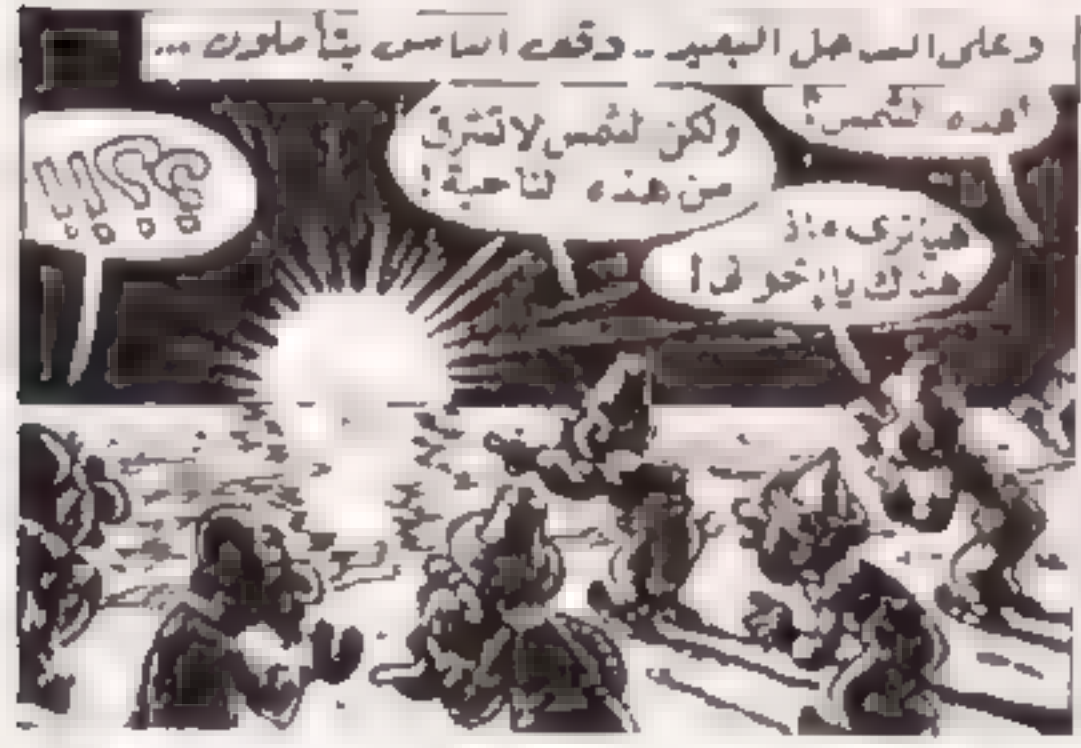 وعلى الساحل البعيد .. وقف اناس يتأملون ...
اهذه الشمس؟
ولكن الشمس لا تشرق
من هذه الناحية!
هيا نرى ماذا
هناك يا إخوان!
؟؟!!